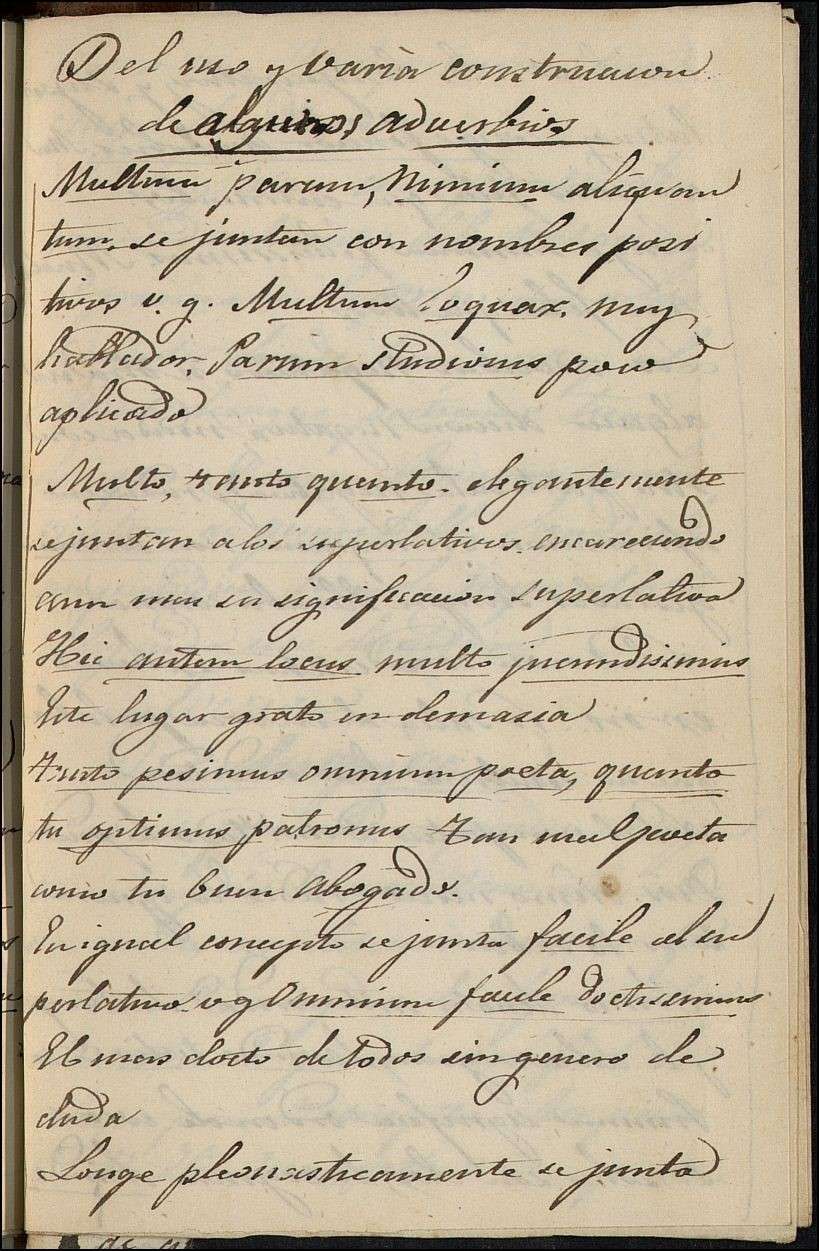 Del uso y varia construcion
de algunos adverbios
Multum parum, Nimium aliquan
tum. se juntan con nombres posi
tivos v. g. Multum loquax. muy
hablador. Parum studiosus poco
aplicado
Multo, tanto quanto. elegantemente
se juntan a los superlativos. encareciendo
aun mas su significacion superlativa
Hic autem locus multo jucundissimus
Este lugar grato en demasia
tanto pesimus omnium poeta, quanto
tu optimus patronus Tan mal poeta
como tu buen abogado.
En igual concepto se junta facile al su
perlativo v g Omnium facile doctissimus
El mas docto de todos sin genero de
duda
Longe pleonasticamente se junta